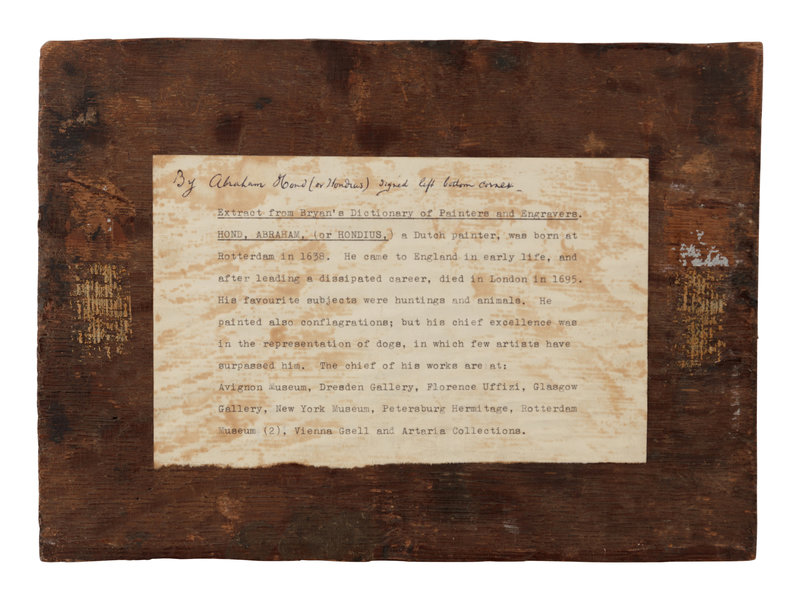 By Abraham Hond (or Hondius) signed left bottom corner_
Extract from Bryan's Dictionary of Painters and Engravers.
HOND, ABRAHAM, (or HONDIUS,) a Dutch painter, was born at
Rotterdam in 1638. He came to England in early life, and
after leading a dissipated career, died in London in 1695.
His favourite subjects were huntings and animals. He
painted also conflagrations; but his chief excellence was
in the representation of dogs, in which few artists have
surpassed him. The chief of his works are at:
Avignon Museum, Dresden Gallery, Florence Uffizi, Glasgow
Gallery, New York Museum, Petersburg Hermitage, Rotterdam
Museum (2), Vienna Gsell and Artaria Collections.